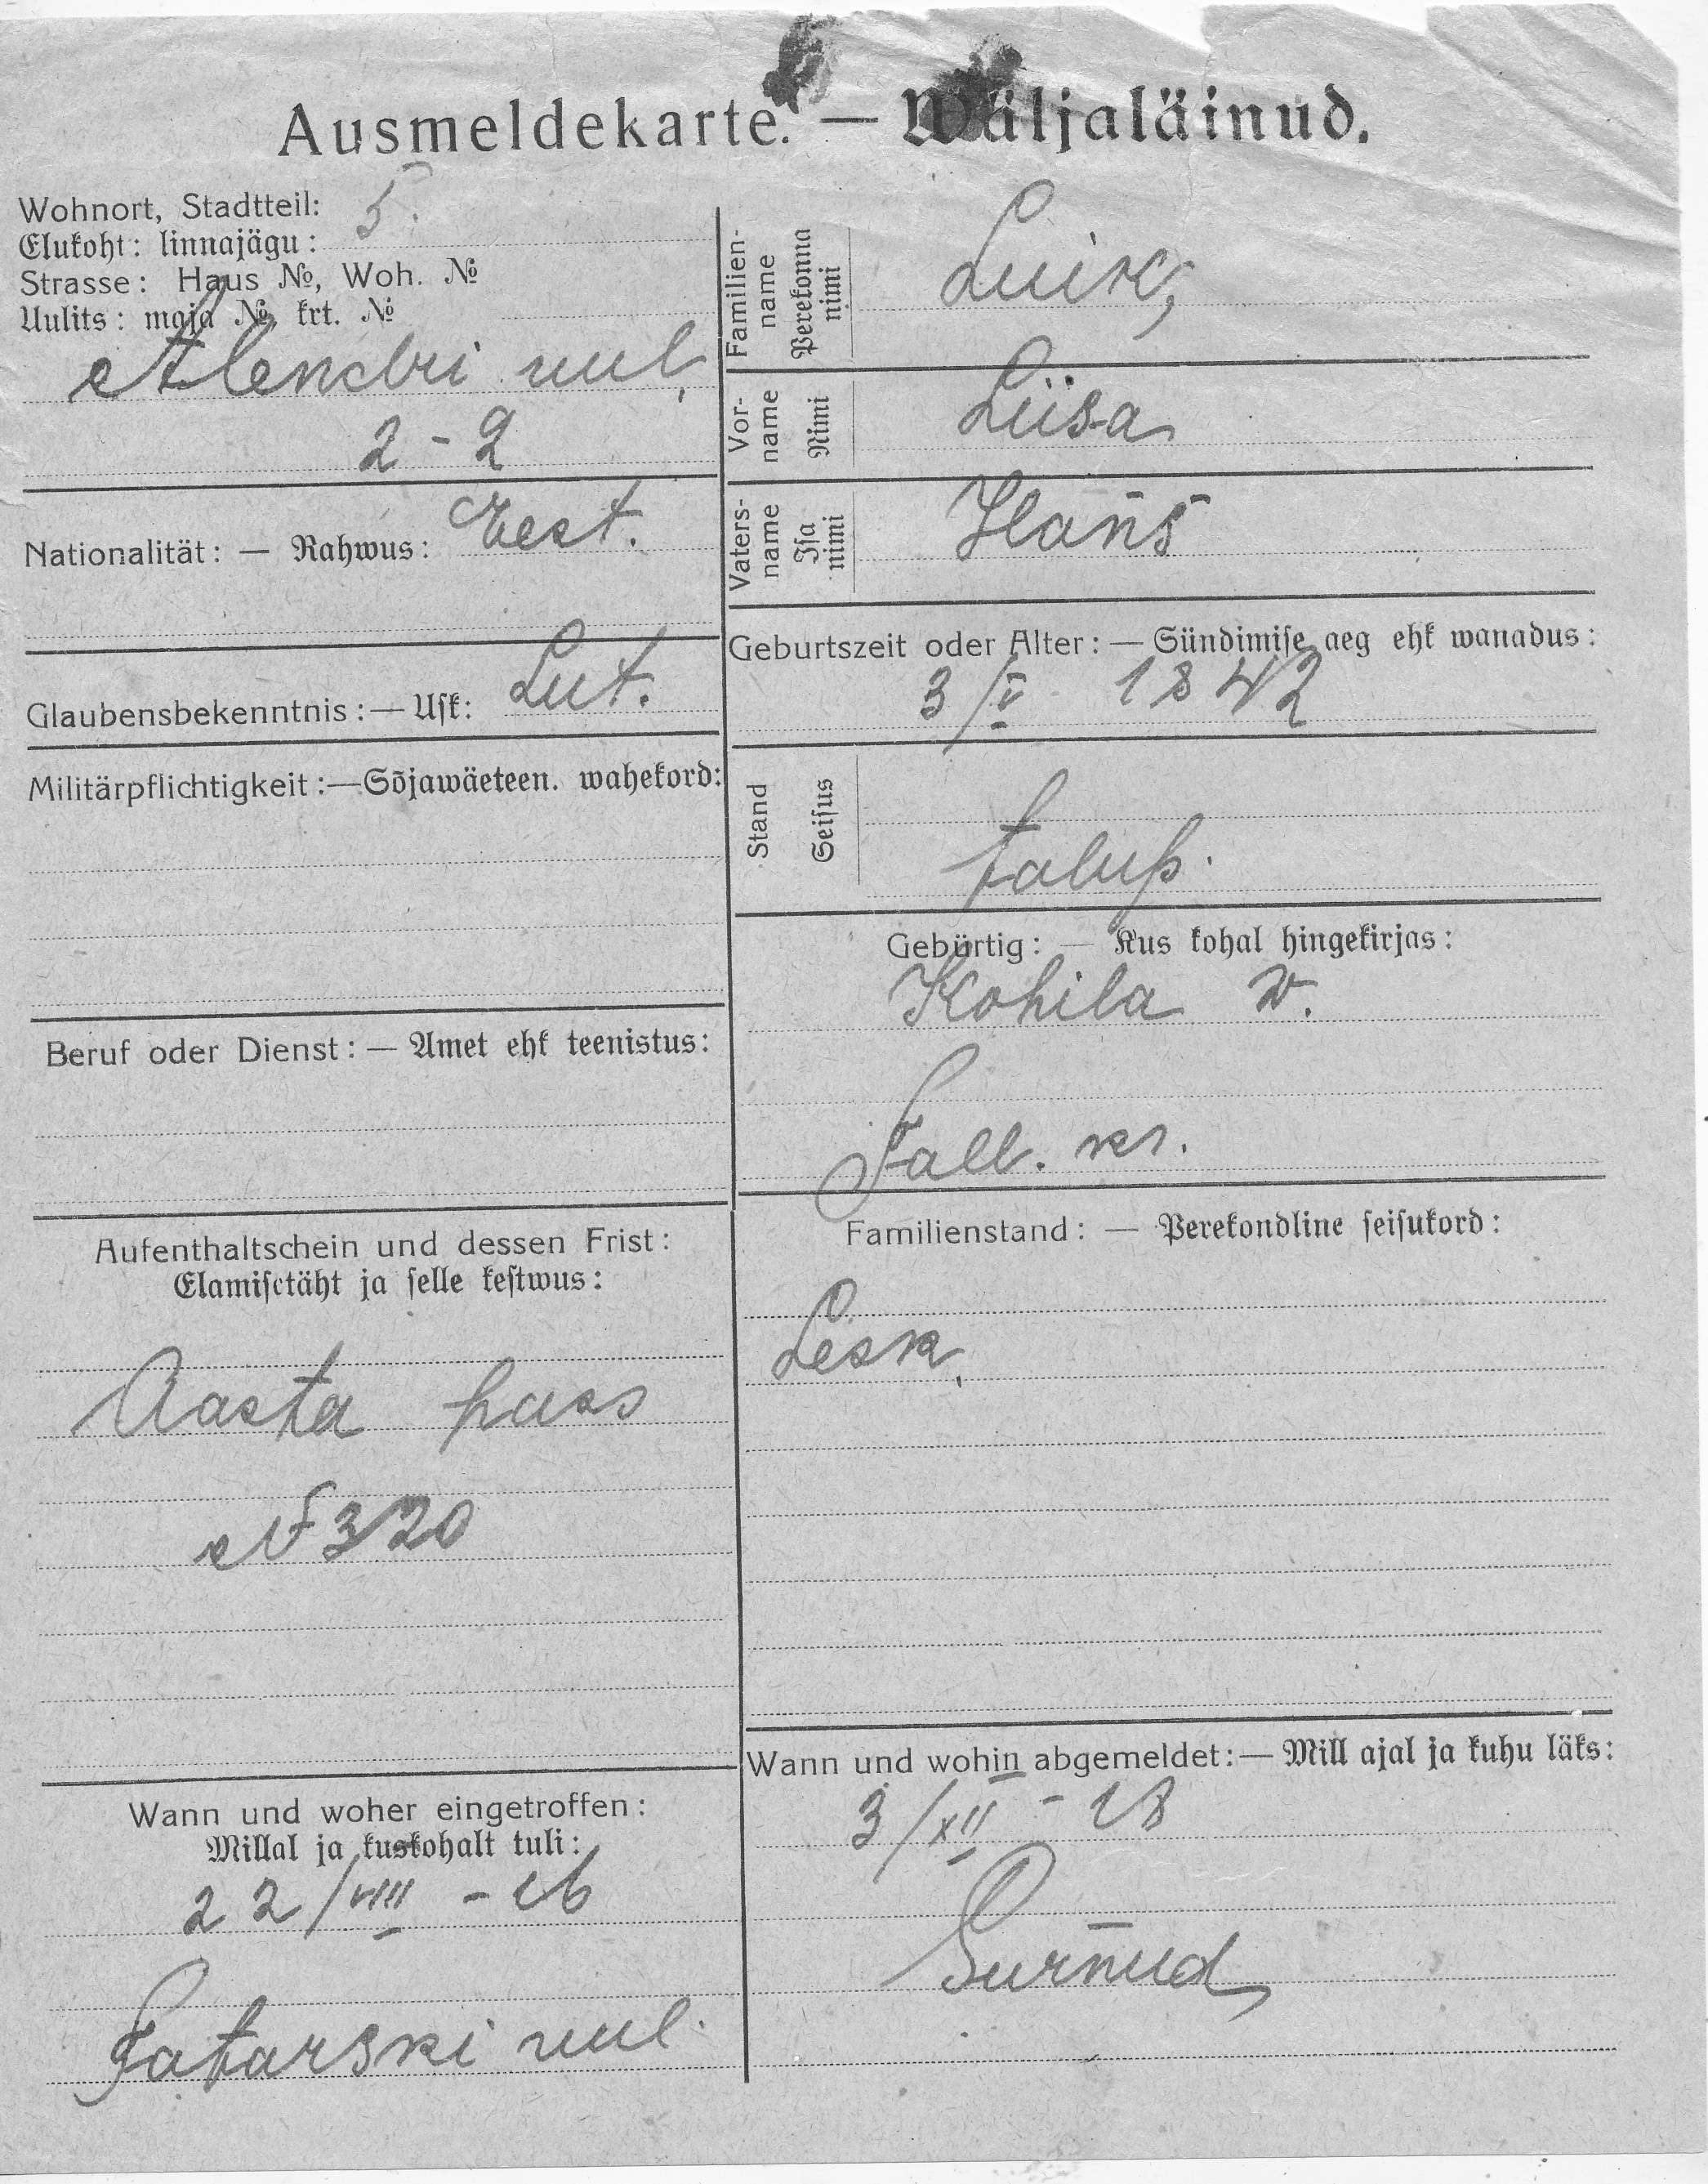 Ausmeldekarte. — Wäljaläinud.
Wohnort, Stadtteil:
Elukoht: linnajägu: 5.
Strasse: Haus №, Woh. №
Uulits: maja № krt. №
Alendri uul.
2 - 2
Nationalität: — Rahwus: Eest.
Glaubensbekenntnis: — Usk: Lut.
Militärpflichtigkeit: — Sõjawäeteen. wahekord:
Beruf oder Dienst: — Amet ehk teenistus:
Aufenthaltschein und dessen Frist:
Elamisetäht ja selle kestwus:
Aasta pass
№ 320
Wann und woher eingetroffen:
Millal ja kuskohalt tuli:
22/VIII - 16
Tatarski uul.
Familien-
name
Perekonna
nimi
Luik,
Vor-
name
Nimi
Liisa
Vaters-
name
Isa
nimi
Hans
Geburtszeit oder Alter: — Sündimise aeg ehk wanadus:
3/V 1842
Stand
Seisus
talup.
Gebürtig: — Kus kohal hingekirjas:
Kohila w.
Tall. kr.
Familienstand: — Perekondline seisukord:
Lesk,
Wann und wohin abgemeldet: — Mill ajal ja kuhu läks:
3/XII - 18
Surnud